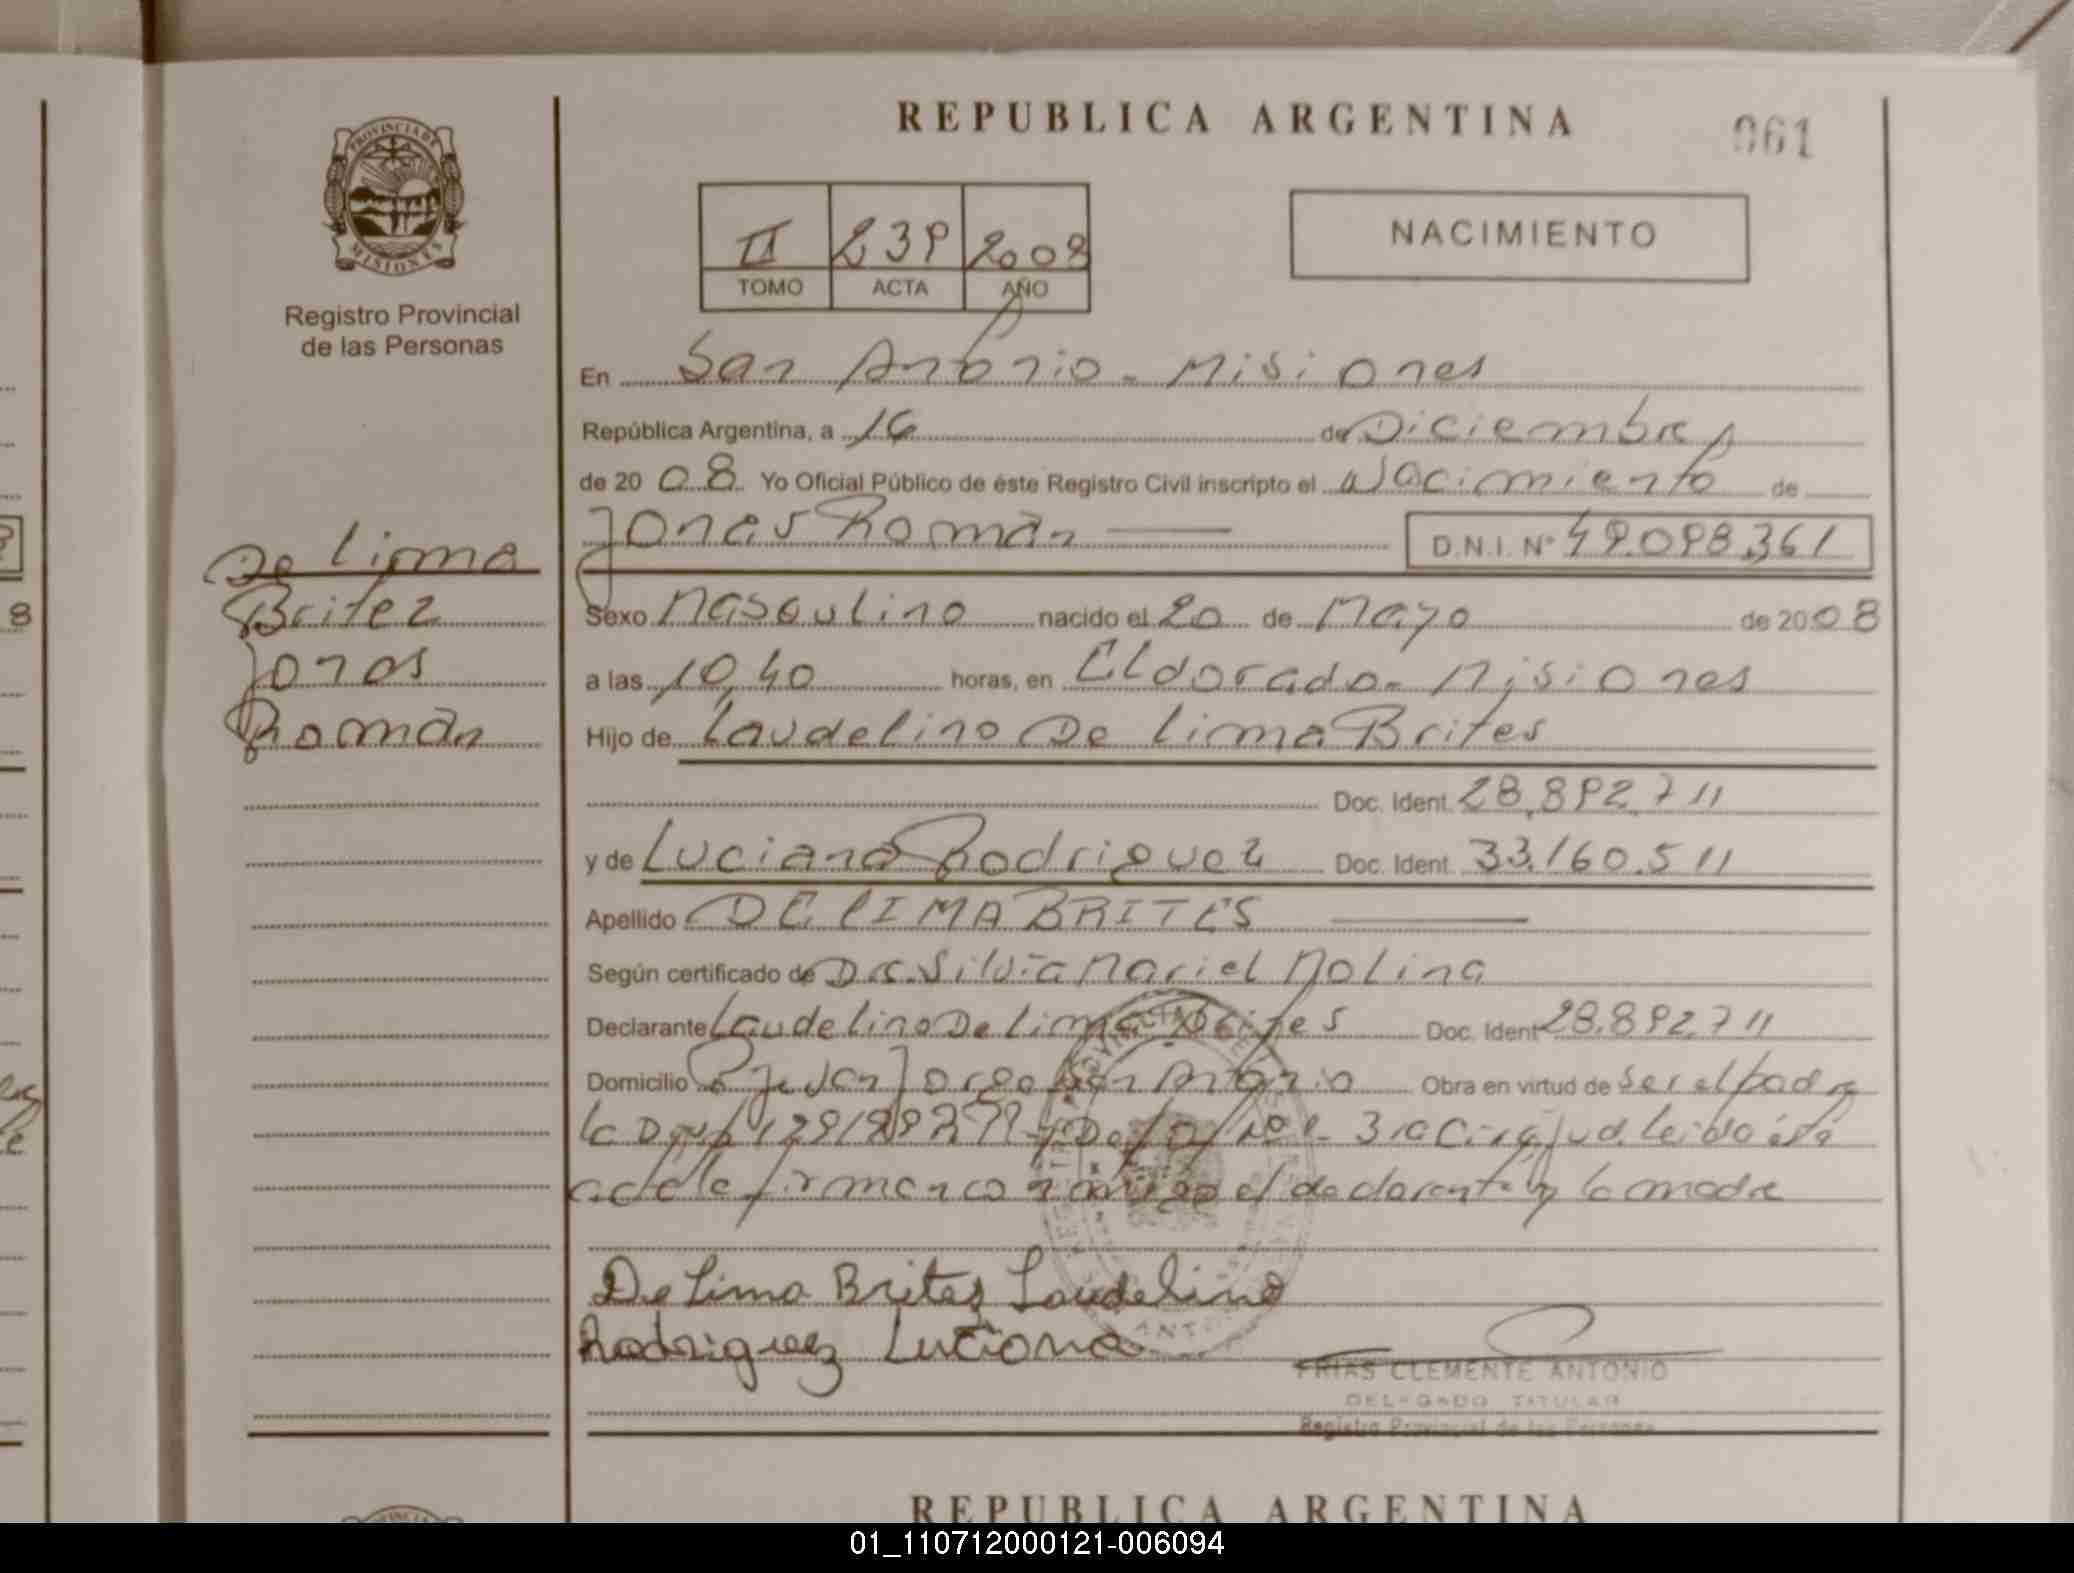 REPUBLICA ARGENTINA
061
PROVINCIA DE
MISIONES
Registro Provincial
de las Personas
II 239 2008
TOMO ACTA AÑO
NACIMIENTO
En San Antonio - Misiones
República Argentina, a 16 de Diciembre
de 20 08 Yo Oficial Público de éste Registro Civil inscripto el Nacimiento de
Jonas Román D.N.I. Nº 49.098.361
De lima
Britez
Jonas
Román
Sexo Masculino nacido el 20 de Mayo de 2008
a las 10,40 horas, en Eldorado - Misiones
Hijo de Laudelino De lima Brites
Doc. Ident. 28.892.711
y de Luciana Rodriguez Doc. Ident. 33.160.511
Apellido DE LIMA BRITES
Según certificado de Dra. Silvia Mariel Molina
Declarante Laudelino De lima Brites Doc. Ident 28.892.711
Domicilio Juan Jorge San Antonio Obra en virtud de ser el padre
3ra Circ. jud. leida ésta
acta firman conmigo el declarante y la madre
De Lima Britez Laudelino
Rodriguez Luciana
FRIAS CLEMENTE ANTONIO
DELEGADO TITULAR
Registro Provincial de las Personas
REPUBLICA ARGENTINA
01_110712000121-006094